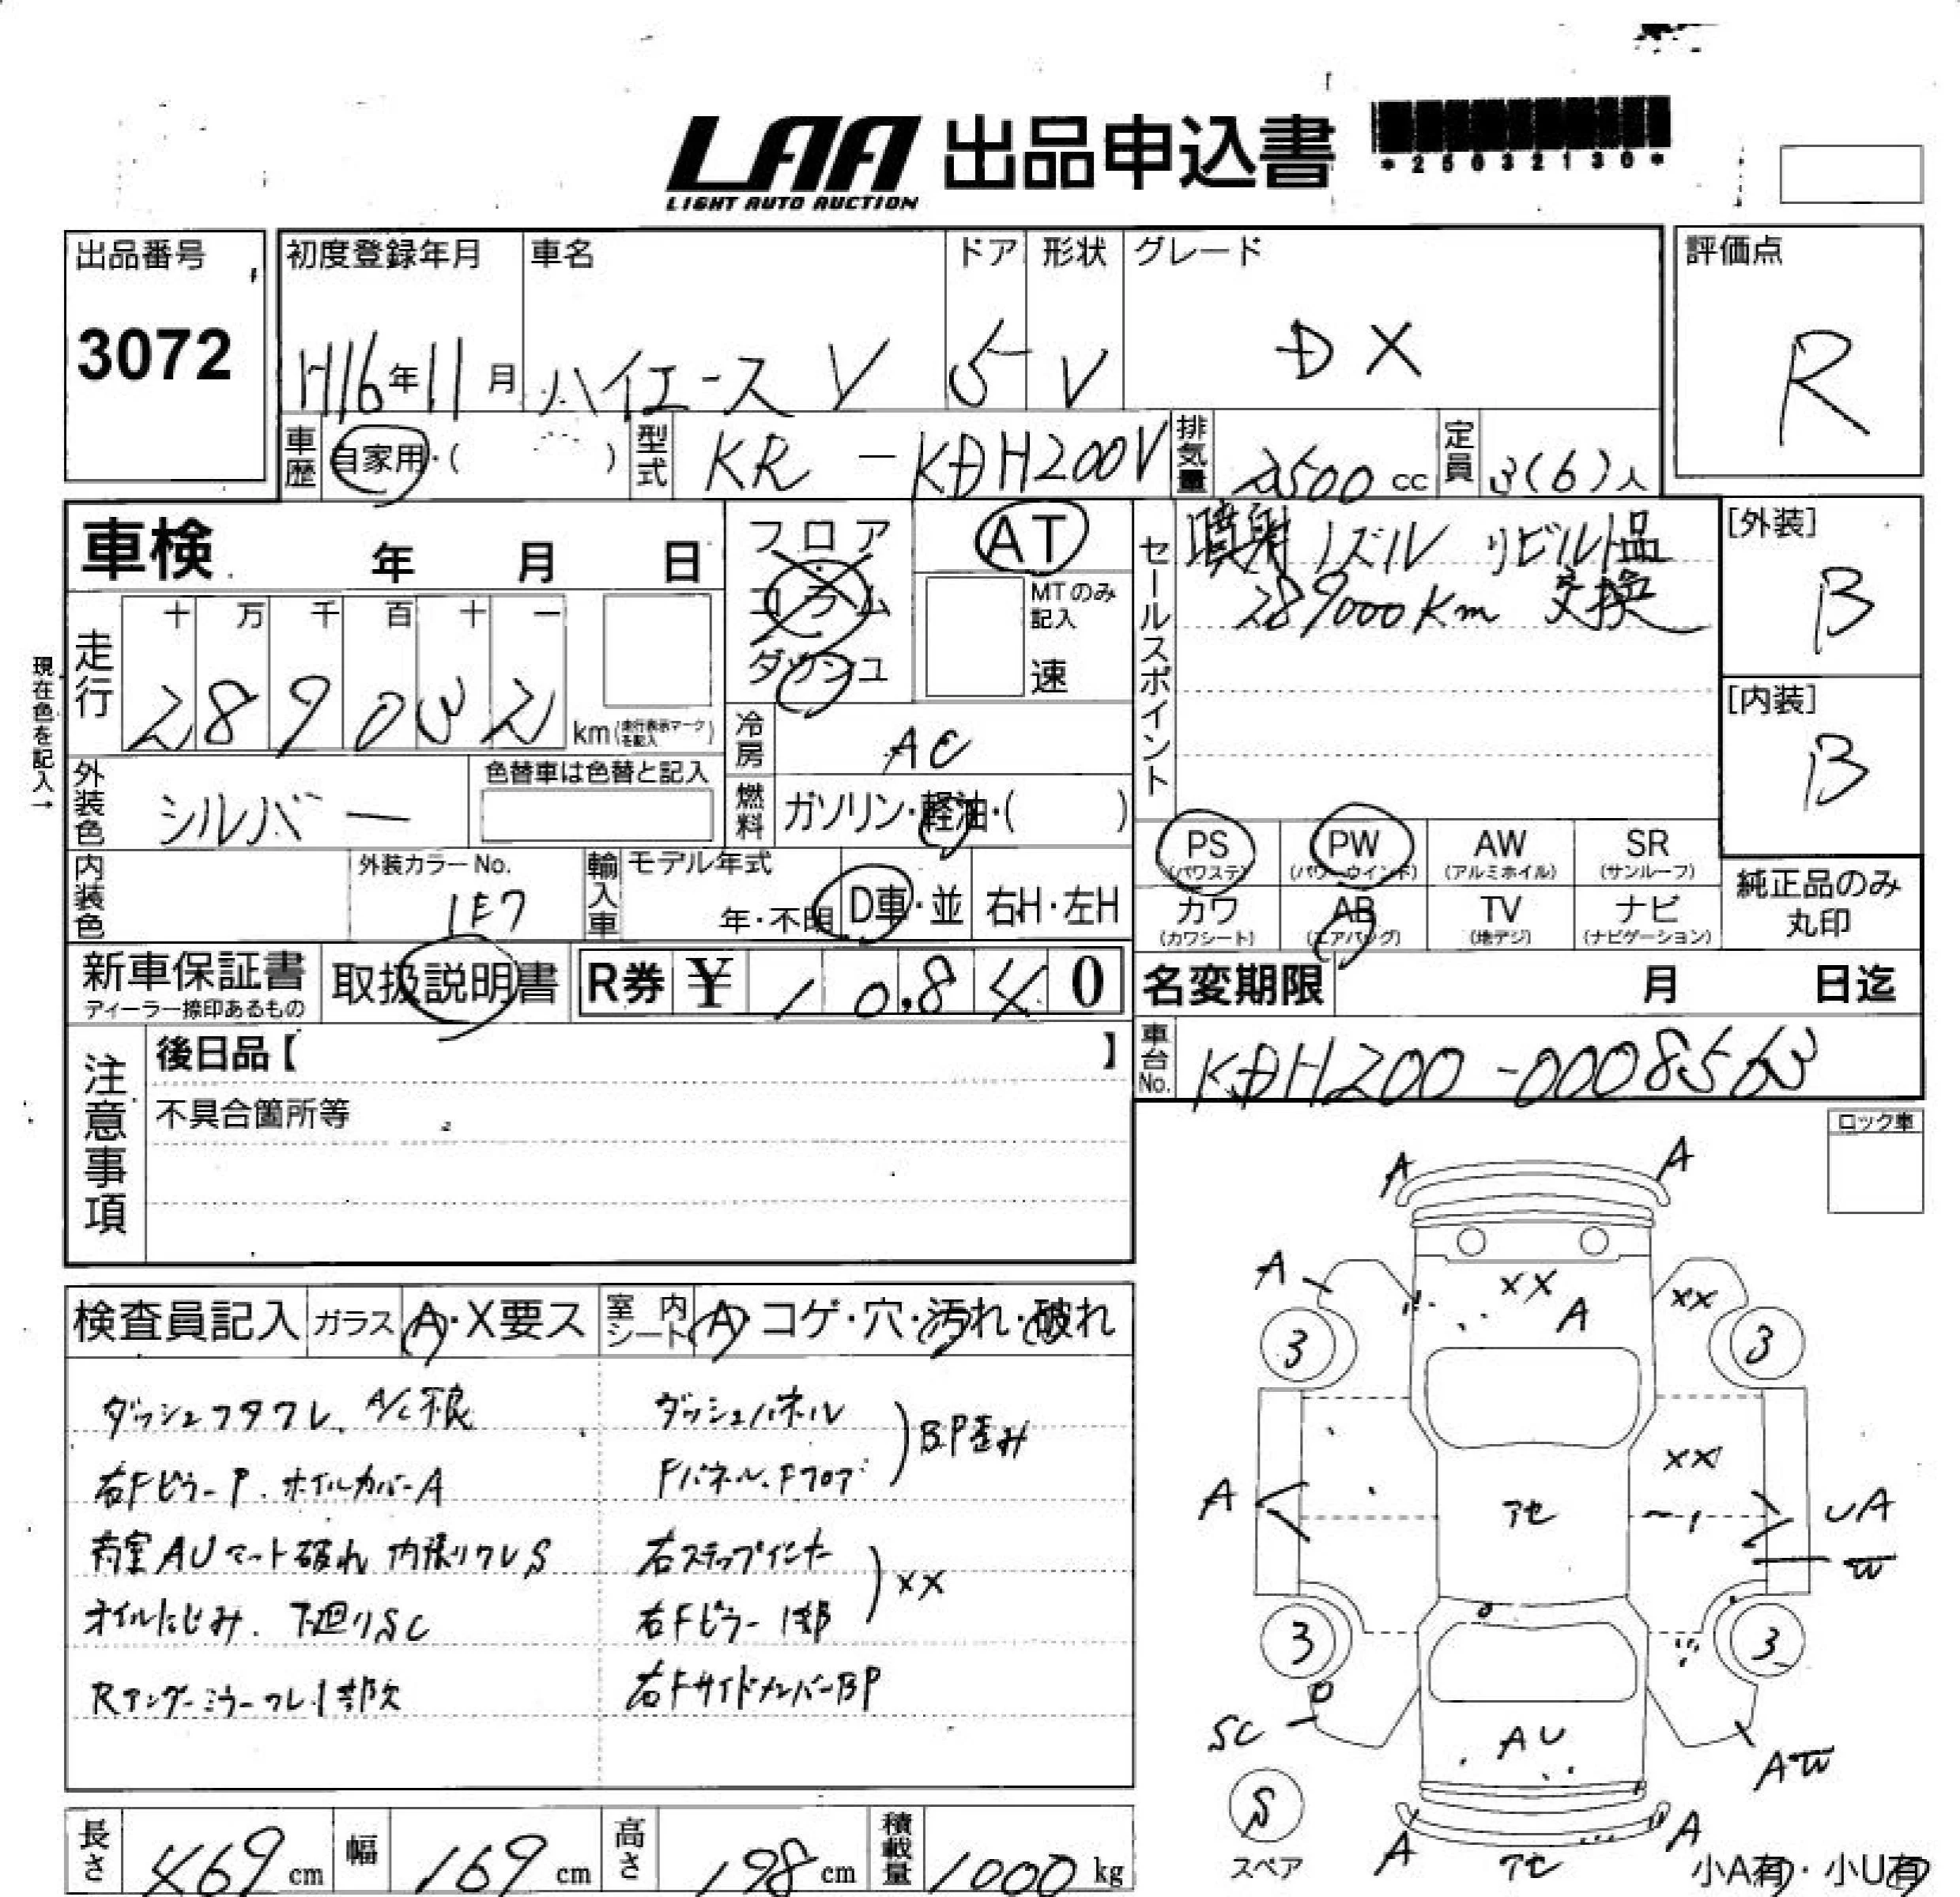 LAA 出品申込書
LIGHT AUTO AUCTION
*25032130*
出品番号
3072
初度登録年月
H16年11月
車名
ハイエース V
ドア
5
形状
V
グレード
DX
評価点
R
車歴
自家用・( )
型式
KR-KDH200V
排気量
2500 cc
定員
3(6)人
車検 年 月 日
フロア
コラム
ダッシュ
AT
MTのみ記入
速
セールスポイント
噴射ノズル リビルト品
289000Km 交換
[外装]
B
[内装]
B
現在色を記入→
走行
十 万 千 百 十 一
289032
km(走行表示マークを記入)
冷房
AC
外装色
シルバー
色替車は色替と記入
燃料
ガソリン・軽油・( )
内装色
外装カラーNo.
1E7
輸入車
モデル年式
年・不明
D車・並
右H・左H
PS
(パワステ)
PW
(パワーウインド)
AW
(アルミホイル)
SR
(サンルーフ)
カワ
(カワシート)
AB
(エアバッグ)
TV
(地デジ)
ナビ
(ナビゲーション)
純正品のみ
丸印
新車保証書
ディーラー捺印あるもの
取扱説明書
R券 ¥ 10,840
名変期限 月 日迄
車台No.
KDH200-0008563
注意事項
後日品【 】
不具合箇所等
ロック車
検査員記入
ガラス
A・X要ス
室内シート
A・コゲ・穴・汚れ・破れ
ダッシュフタワレ、A/C不良
右Fピラー P. ホイルカバーA
荷室AUマット破れ 内張りワレS
オイルにじみ. 下廻りSC
Rアンダーミラーワレ1部欠
ダッシュパネル
Fパネル、Fフロア
BP歪み
右ステップインナー
右Fピラー 1部
XX
右FサイドメンバーBP
A
A
A
XX
A
XX
3
3
XX
A
アセ
UA
W
3
3
SC
AU
AW
S
スペア
A
アセ
A
小A有・小U有
長さ
469 cm
幅
169 cm
高さ
198 cm
積載量
1000 kg